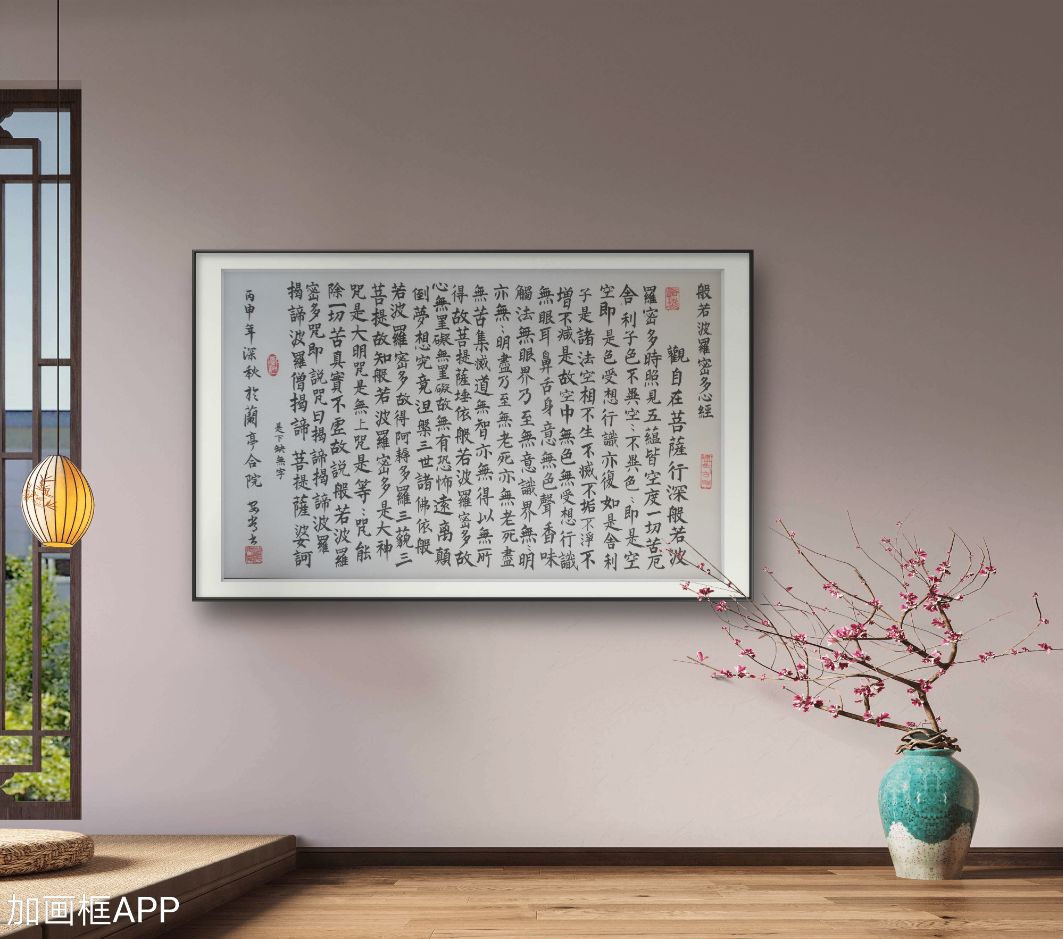 般若波羅密多心經
觀自在菩薩行深般若波
羅密多時照見五蘊皆空度一切苦厄
舍利子色不異空〻不異色〻即是空
空即是色受想行識亦復如是舍利
子是諸法空相不生不滅不垢不淨不
增不减是故空中無色無受想行識
無眼耳鼻舌身意無色聲香味
觸法無眼界乃至無意識界無明
亦無〻明盡乃至無老死亦無老死盡
無苦集滅道無智亦無得以無所
得故菩提薩埵依般若波羅密多故
心無罣礙無罣礙故無有恐怖遠离顛
倒夢想究竟涅槃三世諸佛依般
若波羅密多故得阿耨多羅三藐三
菩提故知般若波羅密多是大神
咒是大明咒是無上咒是等〻咒能
除一切苦真實不虛故説般若波羅
密多咒即説咒曰揭諦揭諦波羅
揭諦波羅僧揭諦菩提薩婆訶
是下缺無字
丙申年深秋於蘭亭合院
加画框APP